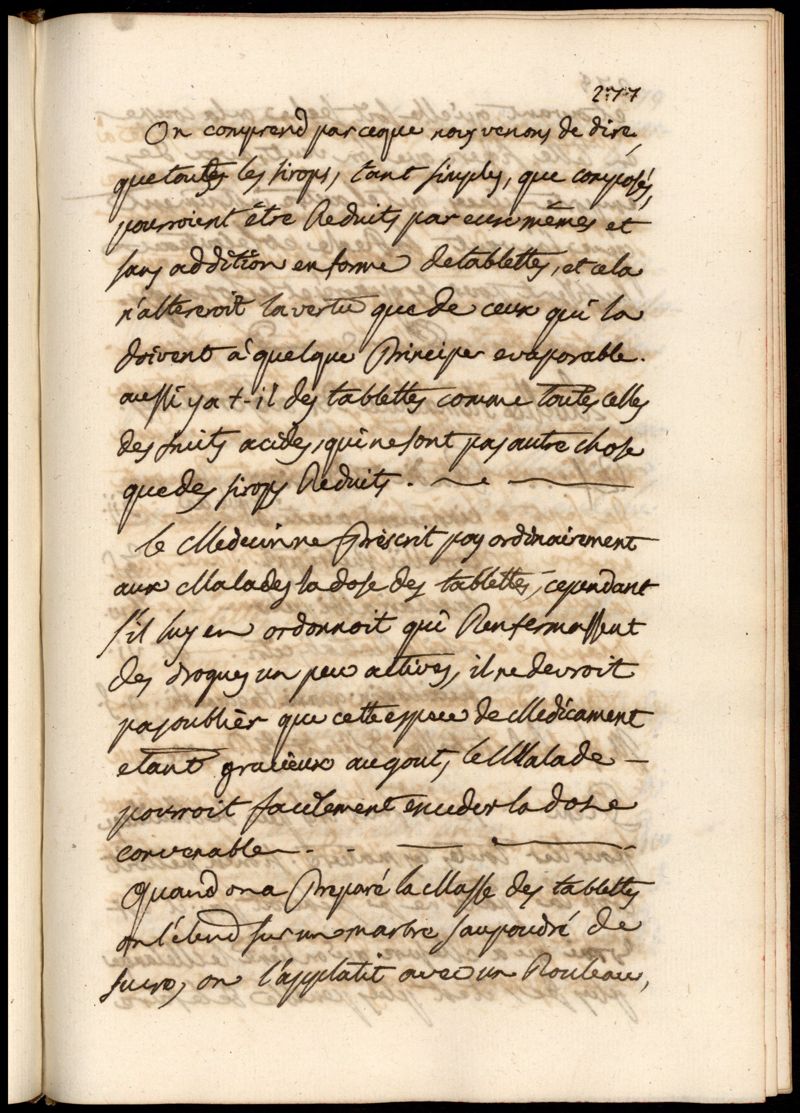 277
On comprend par ceque nous venons de dire,
que toutes les sirops, tant simples, que composés,
pourroient être Reduits par eux mêmes et
sans addition en forme de tablettes, et cela
n'altereroit la vertu que de ceux qui la
doivent a quelque Principe evaporable.
aussi y a t-il des tablettes comme toutes celles
des fruits acides, qui ne sont pas autre chose
que des sirops Reduits.
le Medecin ne Prescrit pas ordinairement
aux Malades la dose des tablettes, cependant
s'il luy en ordonnoit qui Renfermassent
des drogues un peu actives, il ne devroit
pas oublièr que cette espece de Medicament
etant gracieux au gout, le Malade
pourroit facilement exceder la dose
convenable.
Quand on a Preparé la Masse des tablettes
on l'étend sur un marbre saupoudré de
sucre, on l'applatit avec un Rouleau,